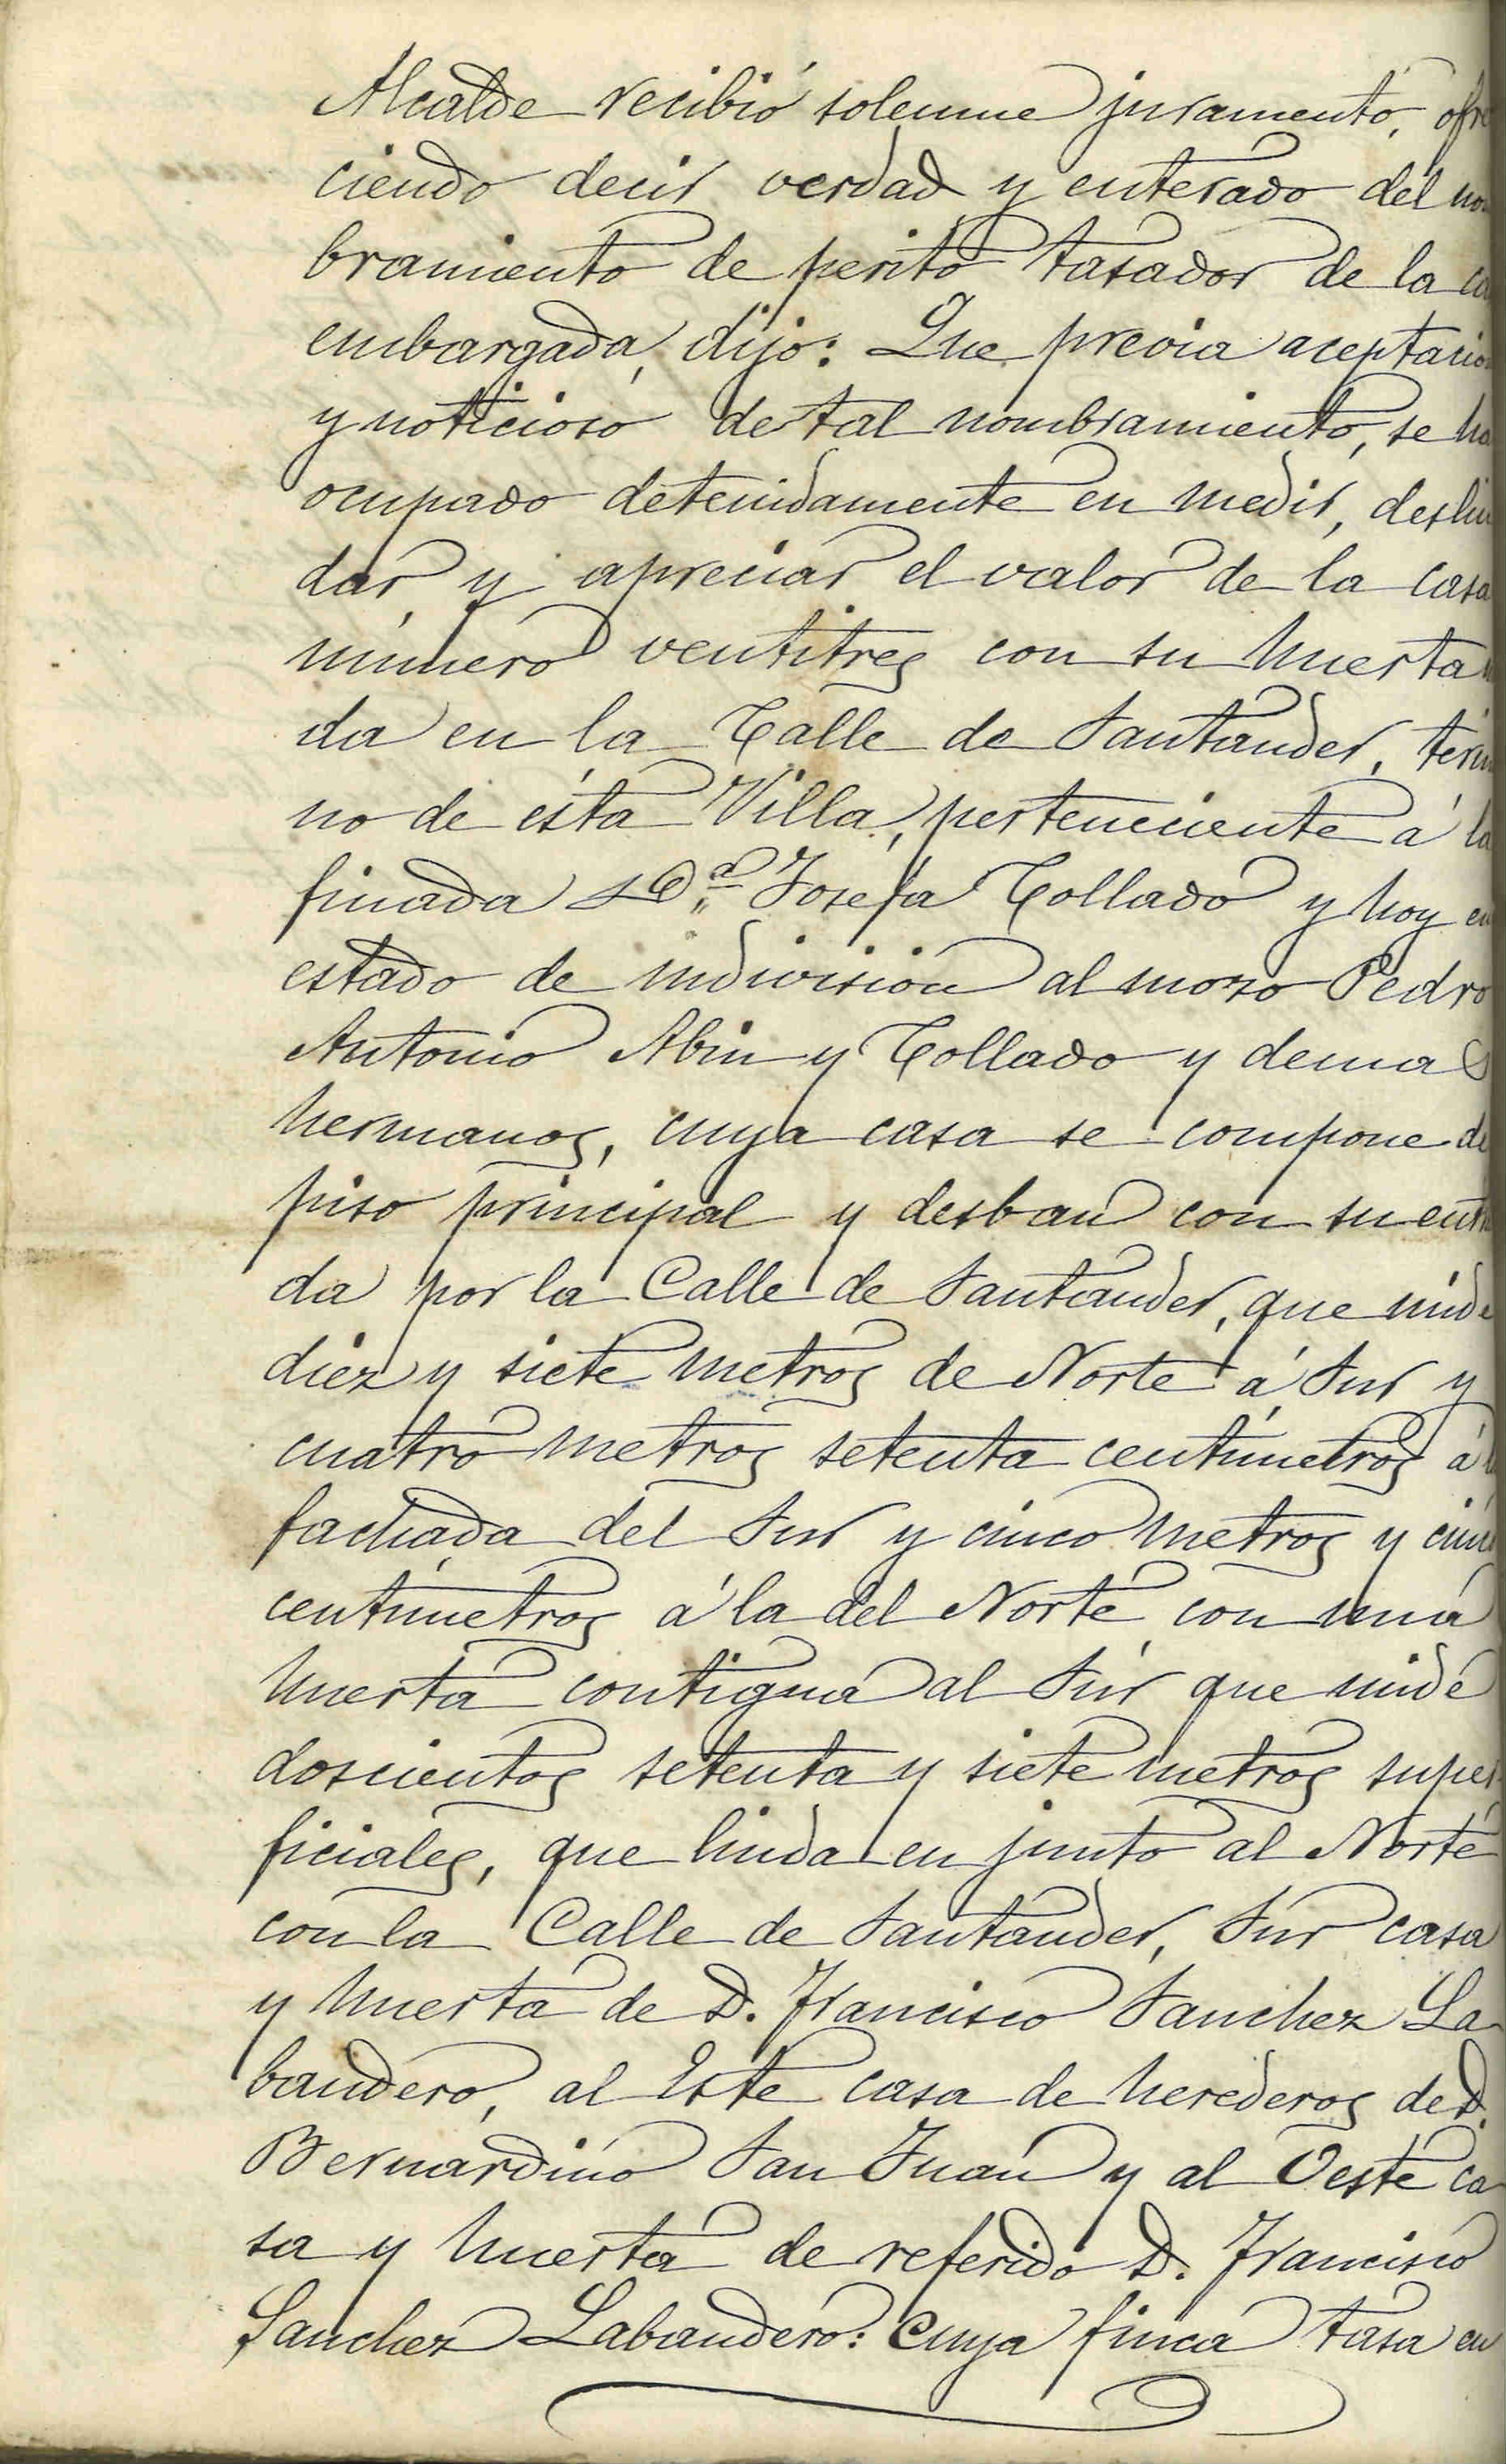 Alcalde recibió solemne juramento, ofre
ciendo decir verdad y enterado del nom
bramiento de perito tasador de la ca
embargada, dijo: Que previa aceptacion
y noticioso de tal nombramiento, se ha
ocupado detenidamente en medir, deslin
dar, y apreciar el valor de la casa
número ventitres con su huerta
da en la Calle de Santander, térmi
no de ésta Villa, perteneciente á la
finada D.ª Josefa Collado y hoy en
estado de indivisión al mozo Pedro
Antonio Abin y Collado y demas
hermanos, cuya casa se compone de
piso principal y desban con su entra
da por la Calle de Santander, que mide
diez y siete metros de Norte á Sur y
cuatro metros setenta centímetros á la
fachada del Sur y cinco metros y cinco
centímetros á la del Norte con una
huerta contigua al Sur que mide
doscientos setenta y siete metros super
ficiales, que linda en junto al Norte
con la Calle de Santander, Sur casa
y huerta de D. Francisco Sanchez La
bandero, al Este casa de herederos de D.
Bernardino San Juan y al Oeste ca
sa y huerta de referido D. Francisco
Sanchez Labandero: Cuya finca tasa en